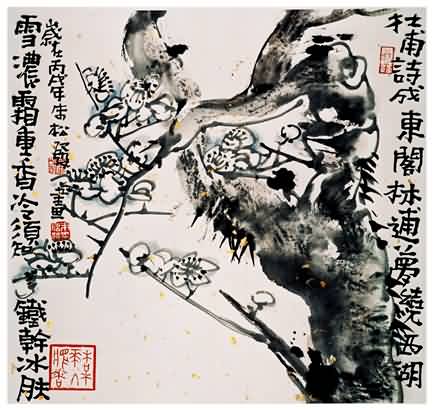 杜甫詩成東閣林逋夢繞西湖
雪濃霜重香冷須鐵幹冰肤
歲在丙戌年朱松發畫